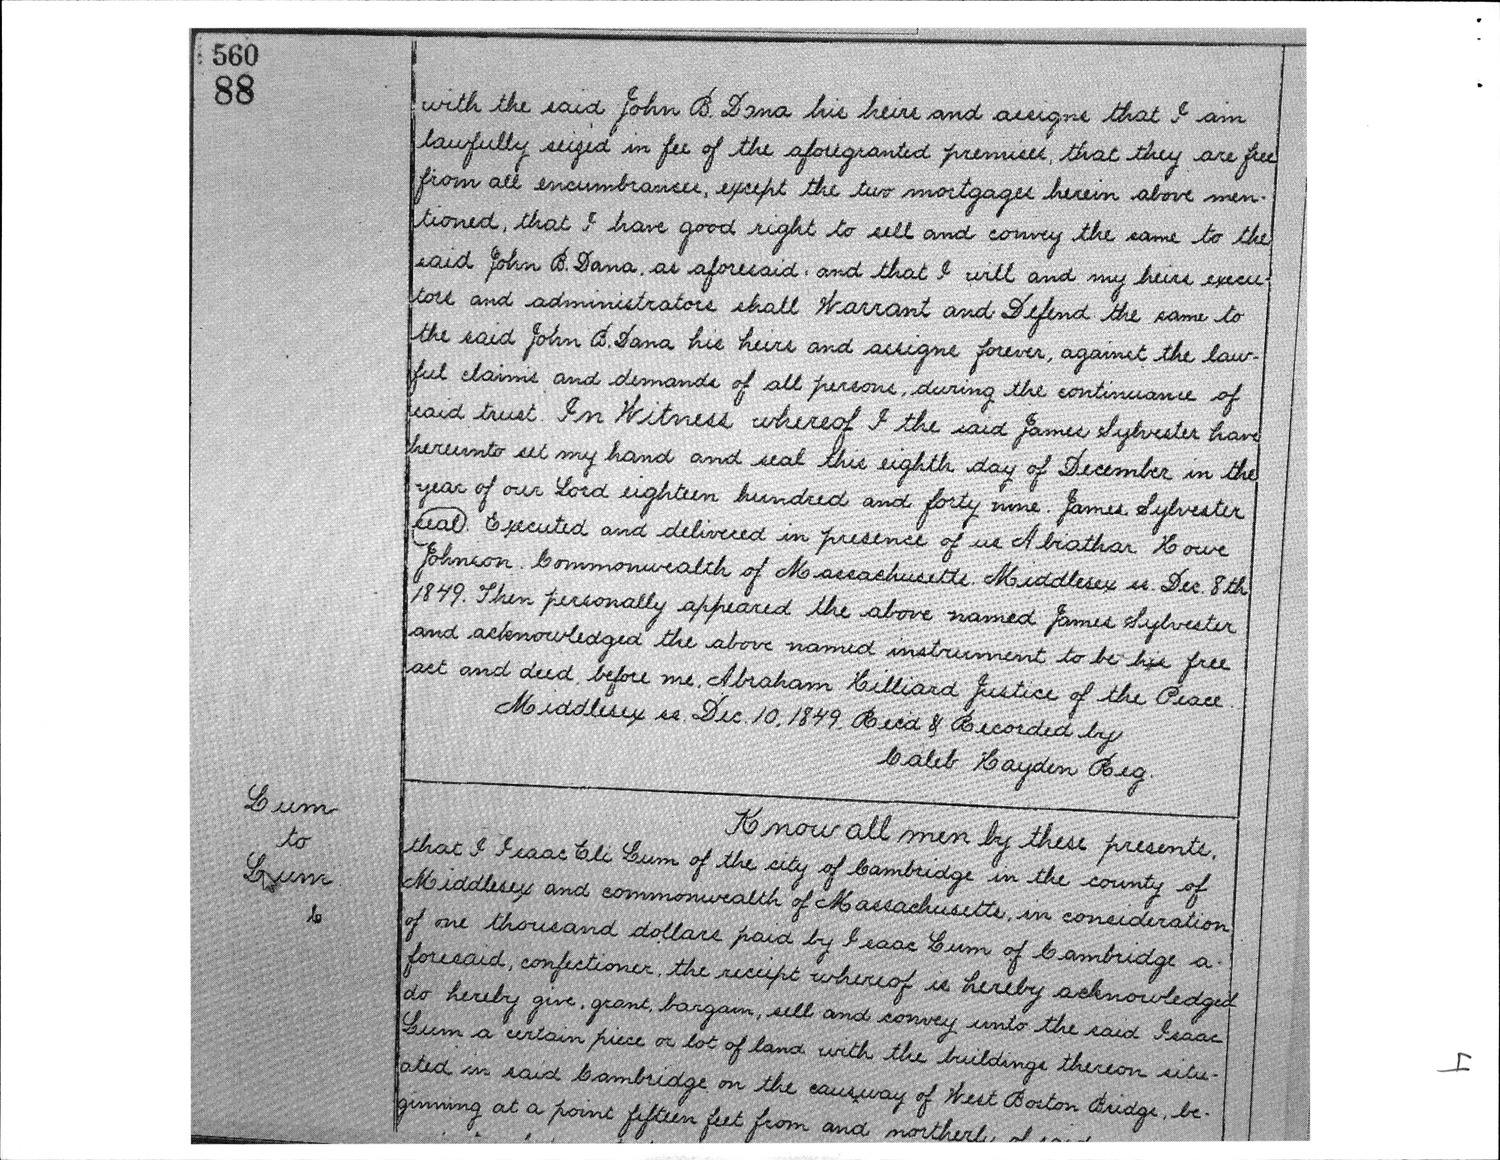 560
88
with the said John B. Dana his heirs and assigns that I am
lawfully seized in fee of the aforegranted premises, that they are free
from all encumbrances, except the two mortgages herein above men-
tioned, that I have good right to sell and convey the same to the
said John B. Dana, as aforesaid. and that I will and my heirs execu-
tors and administrators shall Warrant and Defend the same to
the said John B. Dana his heirs and assigns forever, against the law-
ful claims and demands of all persons, during the continuance of
said trust. In Witness whereof I the said James Sylvester have
hereunto set my hand and seal this eighth day of December in the
year of our Lord eighteen hundred and forty nine. James Sylvester
seal. Executed and delivered in presence of us Abiathar Howe
Johnson. Commonwealth of Massachusetts. Middlesex ss. Dec. 8th
1849. Then personally appeared the above named James Sylvester
and acknowledged the above named instrument to be his free
act and deed, before me, Abraham Hilliard Justice of the Peace.
Middlesex ss. Dec. 10, 1849. Rec'd & Recorded by
Caleb Hayden Reg.
Lum
to
Lum
Know all men by these presents,
that I Isaac Eli Lum of the city of Cambridge in the county of
Middlesex and commonwealth of Massachusetts, in consideration
of one thousand dollars paid by Isaac Lum of Cambridge a-
foresaid, confectioner, the receipt whereof is hereby acknowledged
do hereby give, grant, bargain, sell and convey unto the said Isaac
Lum a certain piece or lot of land with the buildings thereon situ-
ated in said Cambridge on the causway of West Boston Bridge, be-
ginning at a point fifteen feet from and northerly of said